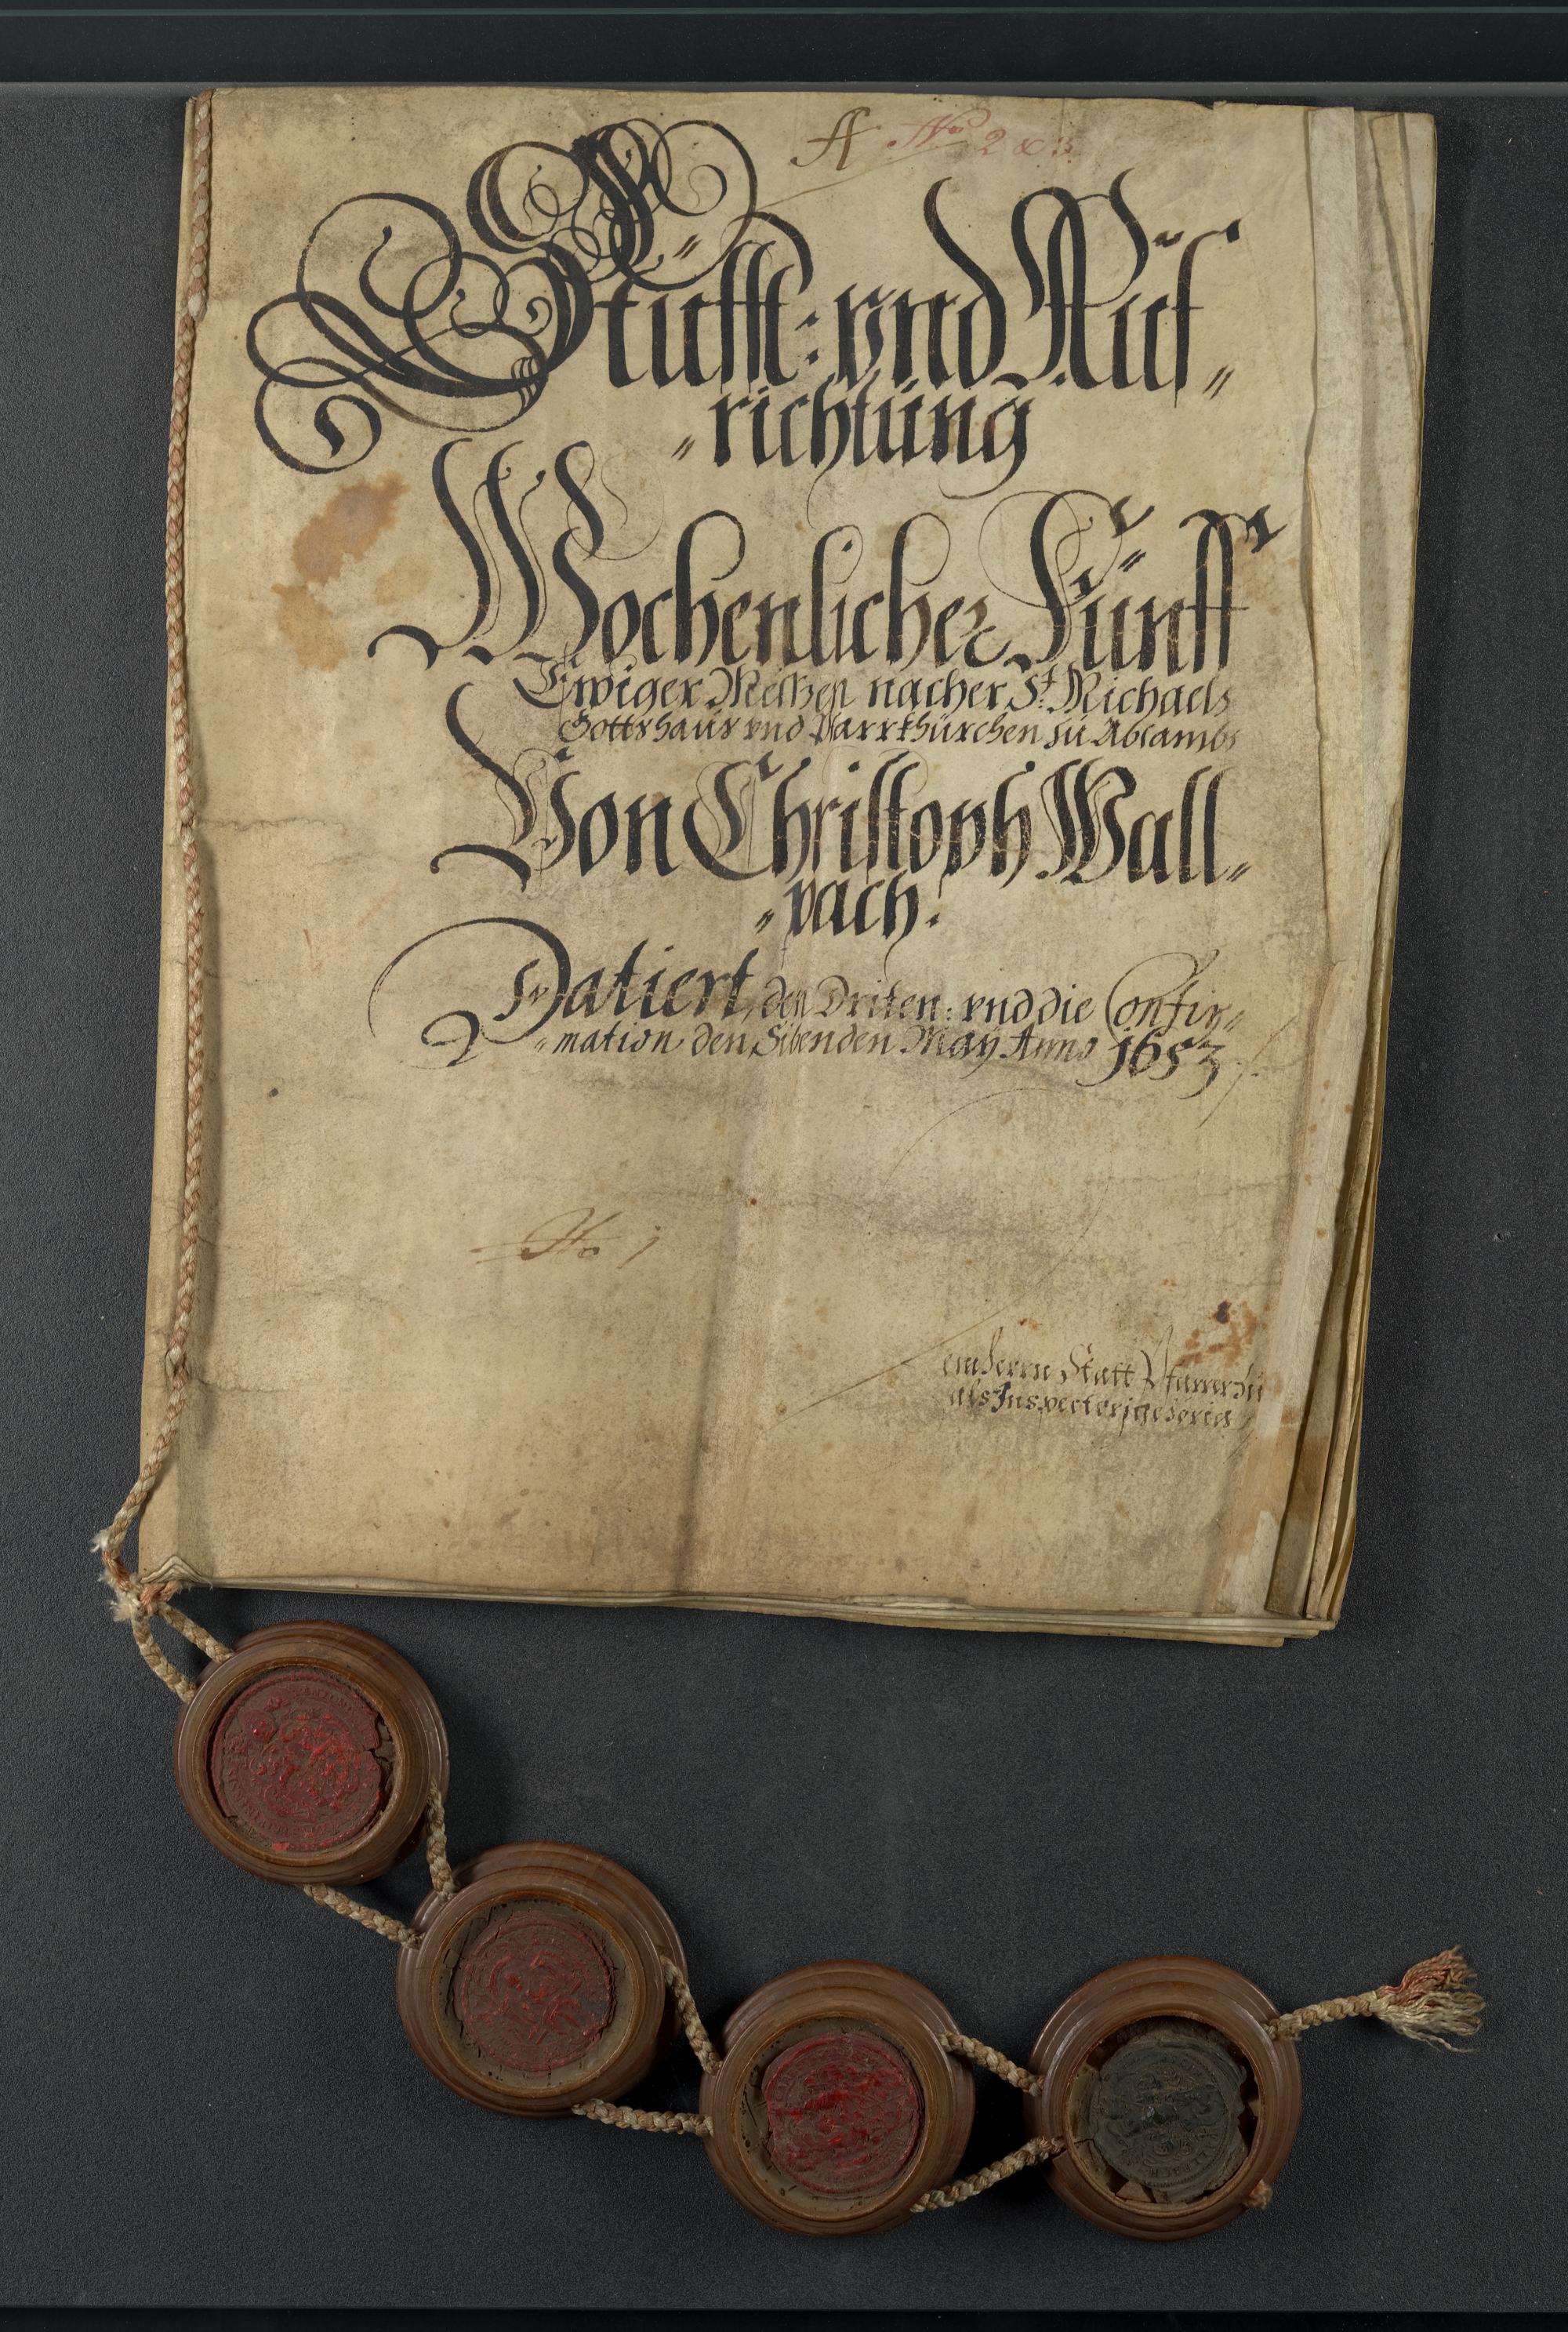 A No 2 & 3
Stüfft: vnd Auf„
„richtüng
Wochenlicher Fünff
Ewiger Messen nacher St: Michaels
Gottshaus vnd Pfarrkhürchen zu Absambs
Von Christoph Wall„
„pach.
Datiert, den Driten: vnd die Confir„
„mation den Sibenden May Anno 1653
No 1
em herrn Statt Pfarrer zu
als Inspectori gehörig